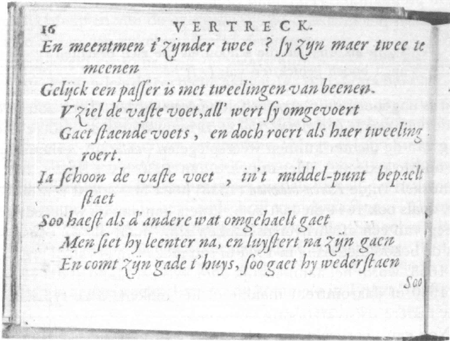 16 VERTRECK.
En meentmen t'zijnder twee ? sy zijn maer twee te
meenen
Gelijck een passer is met tweelingen van beenen.
V ziel de vaste voet, all' wert sy omgevoert
Gaet staende voets, en doch roert als haer tweeling
roert.
Ia schoon de vaste voet , in't middel-punt bepaelt
staet
Soo haest als d'andere wat omgehaelt gaet
Men siet hy leenter na, en luystert na zijn gaen
En comt zijn gade t'huys, soo gaet hy wederstaen
Soo